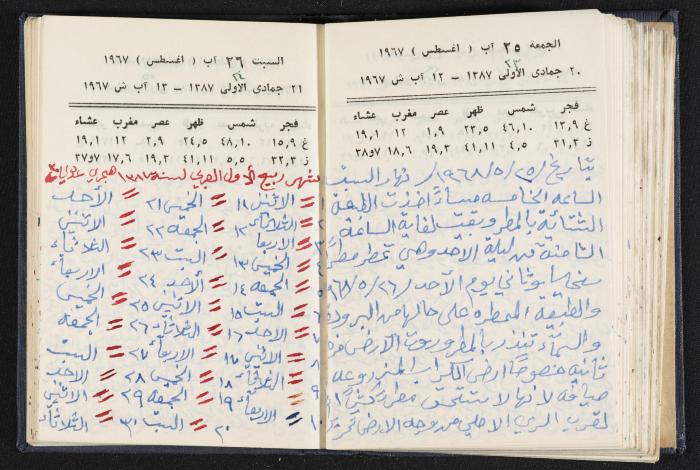 الجمعة ٢٥ آب ( اغسطس ) ١٩٦٧
٢٣
٢٠ جمادى الأولى ١٣٨٧ – ١٢ آب ش ١٩٦٧
فجر شمس ظهر عصر مغرب عشاء
غ ١٣,٩ ٤٦,١٠ ٢٣,٥ ١,٩ ١٢ ١٩,١
ز ٢١,٣ ٤,٥ ٤١,١١ ١٩,٣ ١٨,٦ ٣٨و٧
بتاريخ /٢٥/٥/١٩٦٨/ نهار السبت
الساعة الخامسة مساءً اخذت الطبيعة
الشتائية بالمطر وبقيت لغاية الساعة
الثامنة من ليلة الاحد وهي تمطر مطراً
يوم الأحد /٢٦/٥/٩٦٨
والطبيعة الممطرة على حالها من البرودة
والسماء تنذر بالمطر وروت الارض مرة
ثانية خصوصاً ارض المزروعة
صيافة لأنها لا تستحق مطر كثيراً
لقرب الري الاصلي من وجه الارض
السبت ٢٦ آب ( اغسطس ) ١٩٦٧
٢٤
٢١ جمادى الأولى ١٣٨٧ – ١٣ آب ش ١٩٦٧
فجر شمس ظهر عصر مغرب عشاء
غ ١٥,٩ ٤٨,١٠ ٢٤,٥ ٢,٩ ١٢ ١٩,١
ز ٢٢,٣ ٥,٥ ٤١,١١ ١٩,٣ ١٧,٦ ٣٧و٧
شهر ربيع الأول العربي لسنة ١٣٨٧ هجري
١ = الاثنين ١١ = الخميس ٢١ = الأحد
٢ = الثلاثاء ١٢ = الجمعة ٢٢ = الاثنين
٣ = الاربعا ١٣ = السبت ٢٣ = الثلاثاء
٤ = الخميس ١٤ = الأحد ٢٤ = الاربعاء
٥ = الجمعة ١٥ = الاثنين ٢٥ = الخميس
٦ = السبت ١٦ = الثلاثاء ٢٦ = الجمعة
٧ = الاحد ١٧ = الاربعاء ٢٧ = السبت
٨ = الاثنين ١٨ = الخميس ٢٨ = الاحد
٩ = الثلاثاء ١٩ = الجمعة ٢٩ = الاثنين
١٠ = الاربعاء ٢٠ = السبت ٣٠ = الثلاثاء